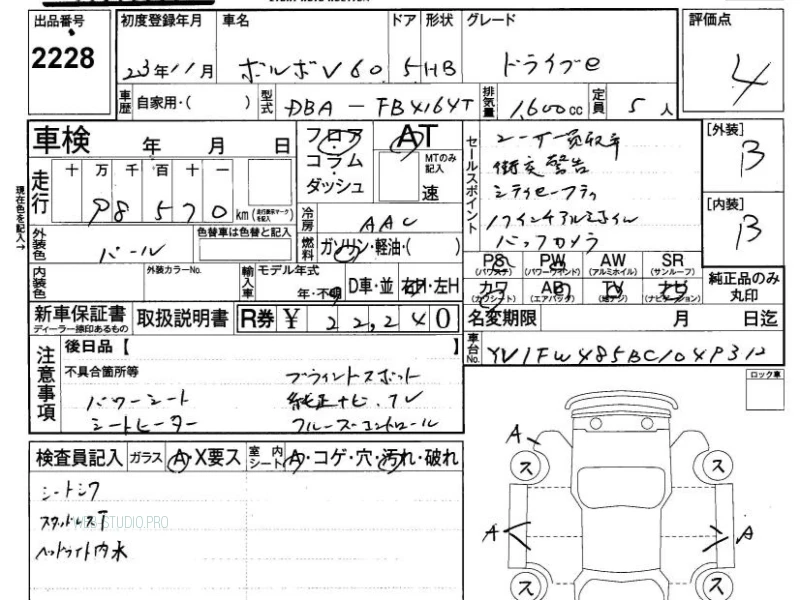 出品番号 初度登録年月 車名 ドア 形状 グレード 評価点
2228 23年11月 ボルボV60 5 HB ドライブe 4
車歴 自家用・( ) 型式 DBA-FB4164T 排気量 1,600cc 定員 5人
車検 年 月 日 フロア AT セールスポイント ユーザー買取車 [外装]
コラム MTのみ記入 衝突警告 B
走行 十 万 千 百 十 一 ダッシュ 速 シティセーフティ
98570 km (走行表示マークを記入) 冷房 AAC 17インチアルミホイル [内装]
現在色を記入→
外装色 パール 色替車は色替と記入 燃料 ガソリン・軽油・( ) バックカメラ B
内装色 外装カラーNo. 輸入車 モデル年式 年・不明 D車・並 右H・左H
PS (パワステ) PW (パワーウインド) AW (アルミホイル) SR (サンルーフ)
カワ (カワシート) AB (エアバッグ) TV (地デジ) ナビ (ナビゲーション) 純正品のみ丸印
新車保証書 ディーラー捺印あるもの 取扱説明書 R券 ¥ 22,240 名変期限 月 日迄
車台No. YV1FW485BC1049312
注意事項 後日品【 】 ロック車
不具合箇所等 ブラインドスポット
パワーシート 純正ナビ、TV
シートヒーター クルーズコントロール
検査員記入 ガラス A・X要ス 室内シート A・コゲ・穴・汚れ・破れ
シートシワ
スタッドレスT
WEB-STUDIO.PRO
ヘッドライト内水
A
ス ス
A A
ス ス